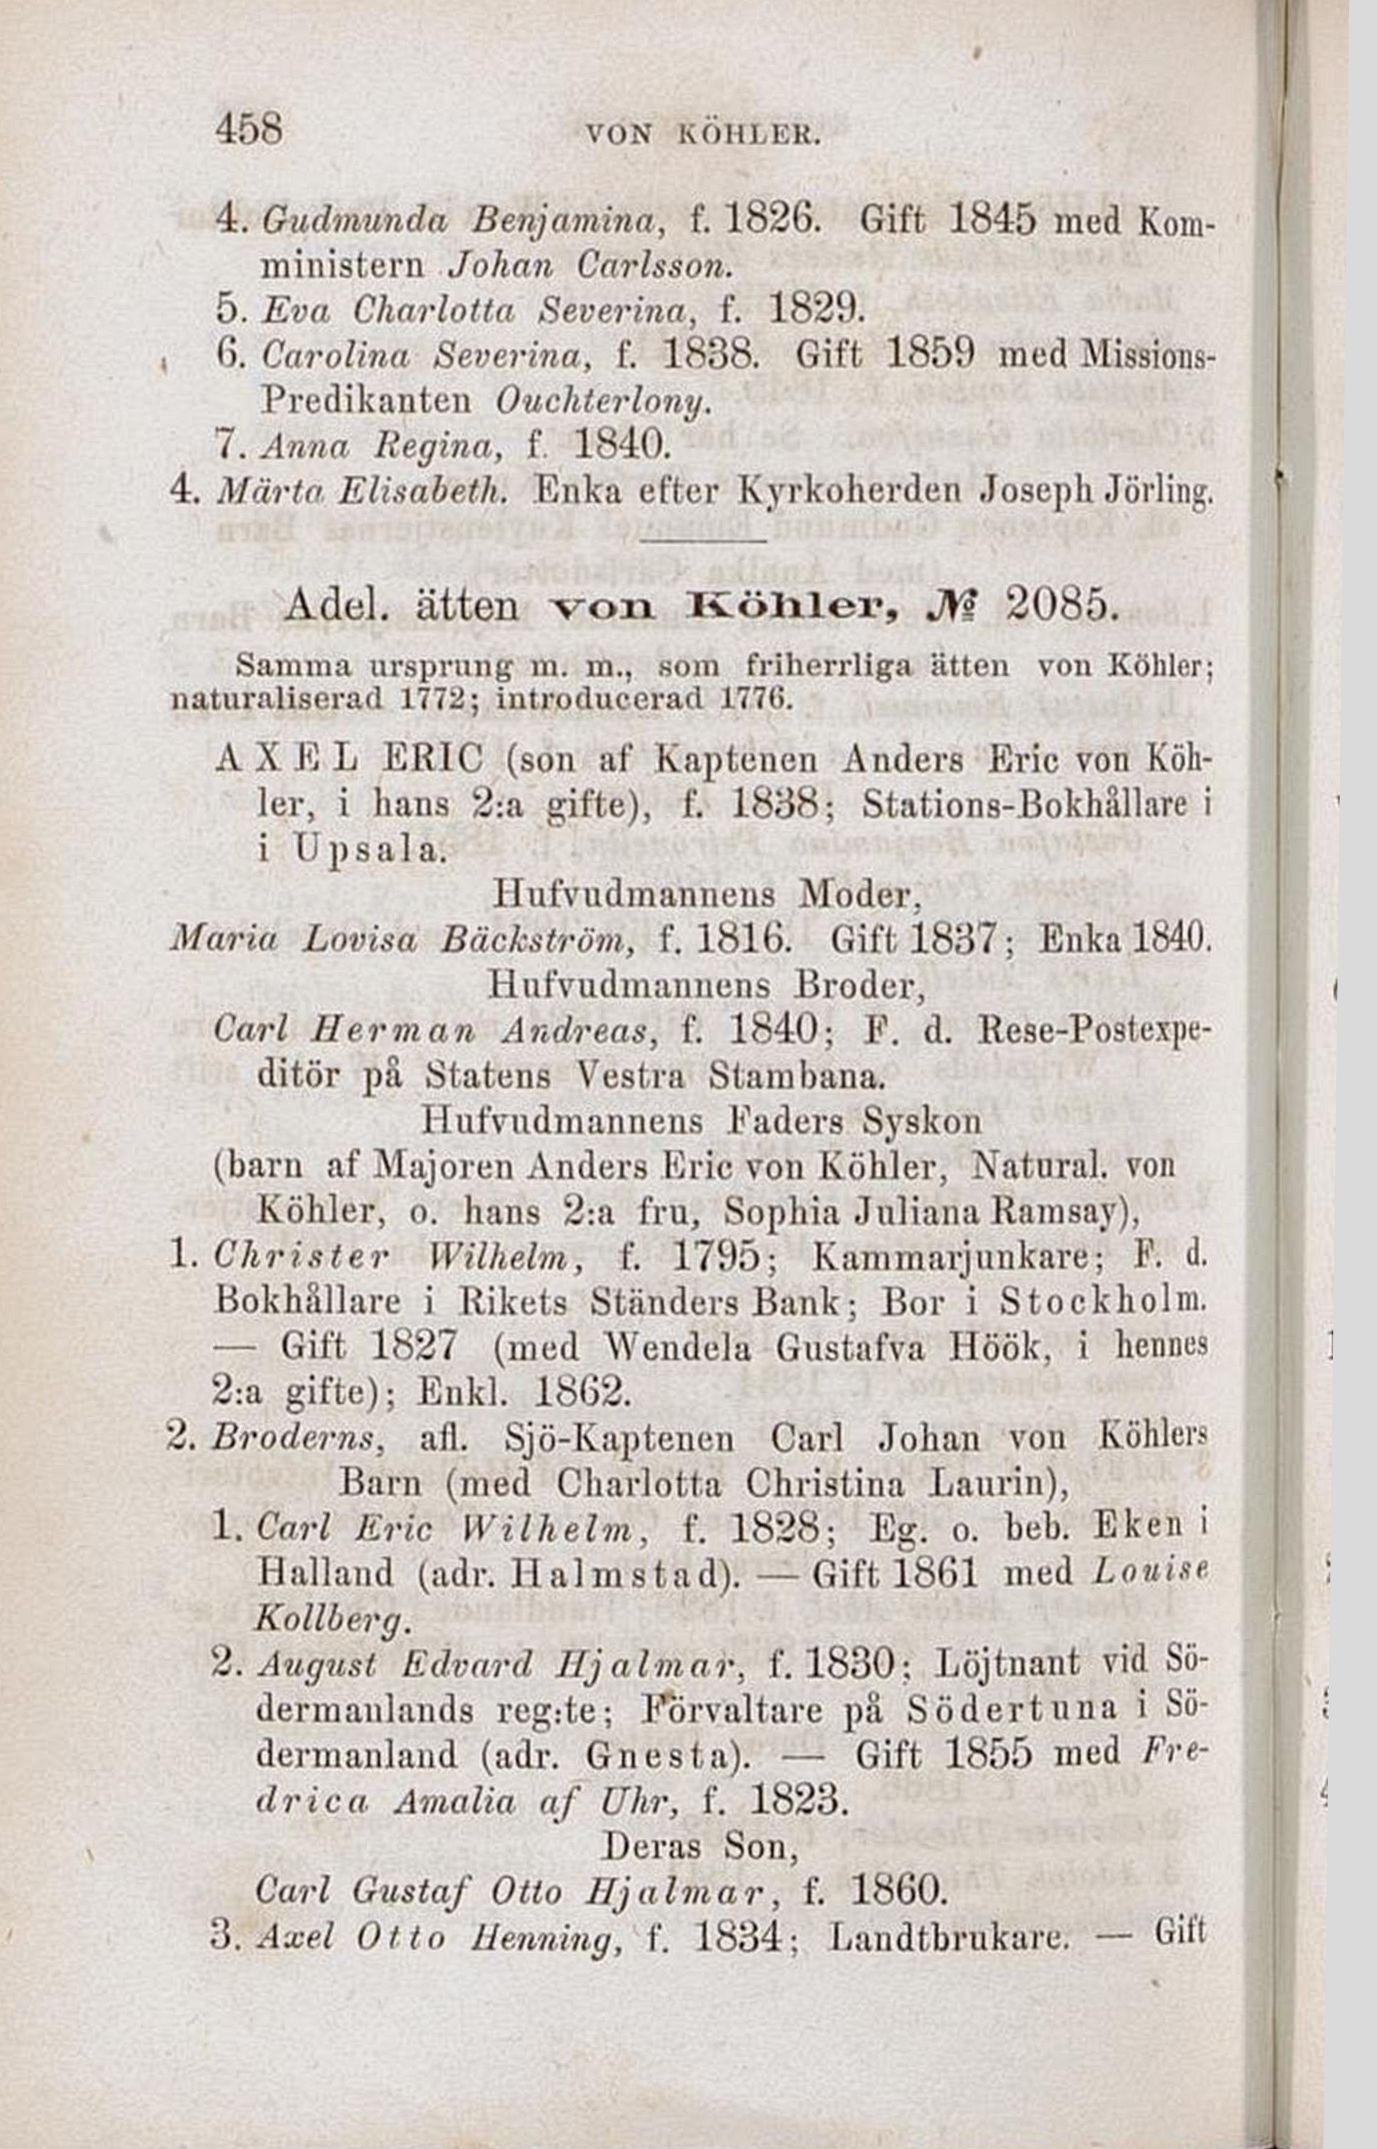 458 VON KÖHLER.
4. Gudmunda Benjamina, f. 1826. Gift 1845 med Kom-
ministern Johan Carlsson.
5. Eva Charlotta Severina, f. 1829.
6. Carolina Severina, f. 1838. Gift 1859 med Missions-
Predikanten Ouchterlony.
7. Anna Regina, f. 1840.
4. Märta Elisabeth. Enka efter Kyrkoherden Joseph Jörling.
Adel. ätten von Köhler, № 2085.
Samma ursprung m. m., som friherrliga ätten von Köhler;
naturaliserad 1772; introducerad 1776.
AXEL ERIC (son af Kaptenen Anders Eric von Köh-
ler, i hans 2:a gifte), f. 1838; Stations-Bokhållare i
i Upsala.
Hufvudmannens Moder,
Maria Lovisa Bäckström, f. 1816. Gift 1837; Enka 1840.
Hufvudmannens Broder,
Carl Herman Andreas, f. 1840; F. d. Rese-Postexpe-
ditör på Statens Vestra Stambana.
Hufvudmannens Faders Syskon
(barn af Majoren Anders Eric von Köhler, Natural. von
Köhler, o. hans 2:a fru, Sophia Juliana Ramsay),
1. Christer Wilhelm, f. 1795; Kammarjunkare; F. d.
Bokhållare i Rikets Ständers Bank; Bor i Stockholm.
— Gift 1827 (med Wendela Gustafva Höök, i hennes
2:a gifte); Enkl. 1862.
2. Broderns, afl. Sjö-Kaptenen Carl Johan von Köhlers
Barn (med Charlotta Christina Laurin),
1. Carl Eric Wilhelm, f. 1828; Eg. o. beb. Eken i
Halland (adr. Halmstad). — Gift 1861 med Louise
Kollberg.
2. August Edvard Hjalmar, f. 1830; Löjtnant vid Sö-
dermanlands reg:te; Förvaltare på Södertuna i Sö-
dermanland (adr. Gnesta). — Gift 1855 med Fre-
drica Amalia af Uhr, f. 1823.
Deras Son,
Carl Gustaf Otto Hjalmar, f. 1860.
3. Axel Otto Henning, f. 1834; Landtbrukare. — Gift